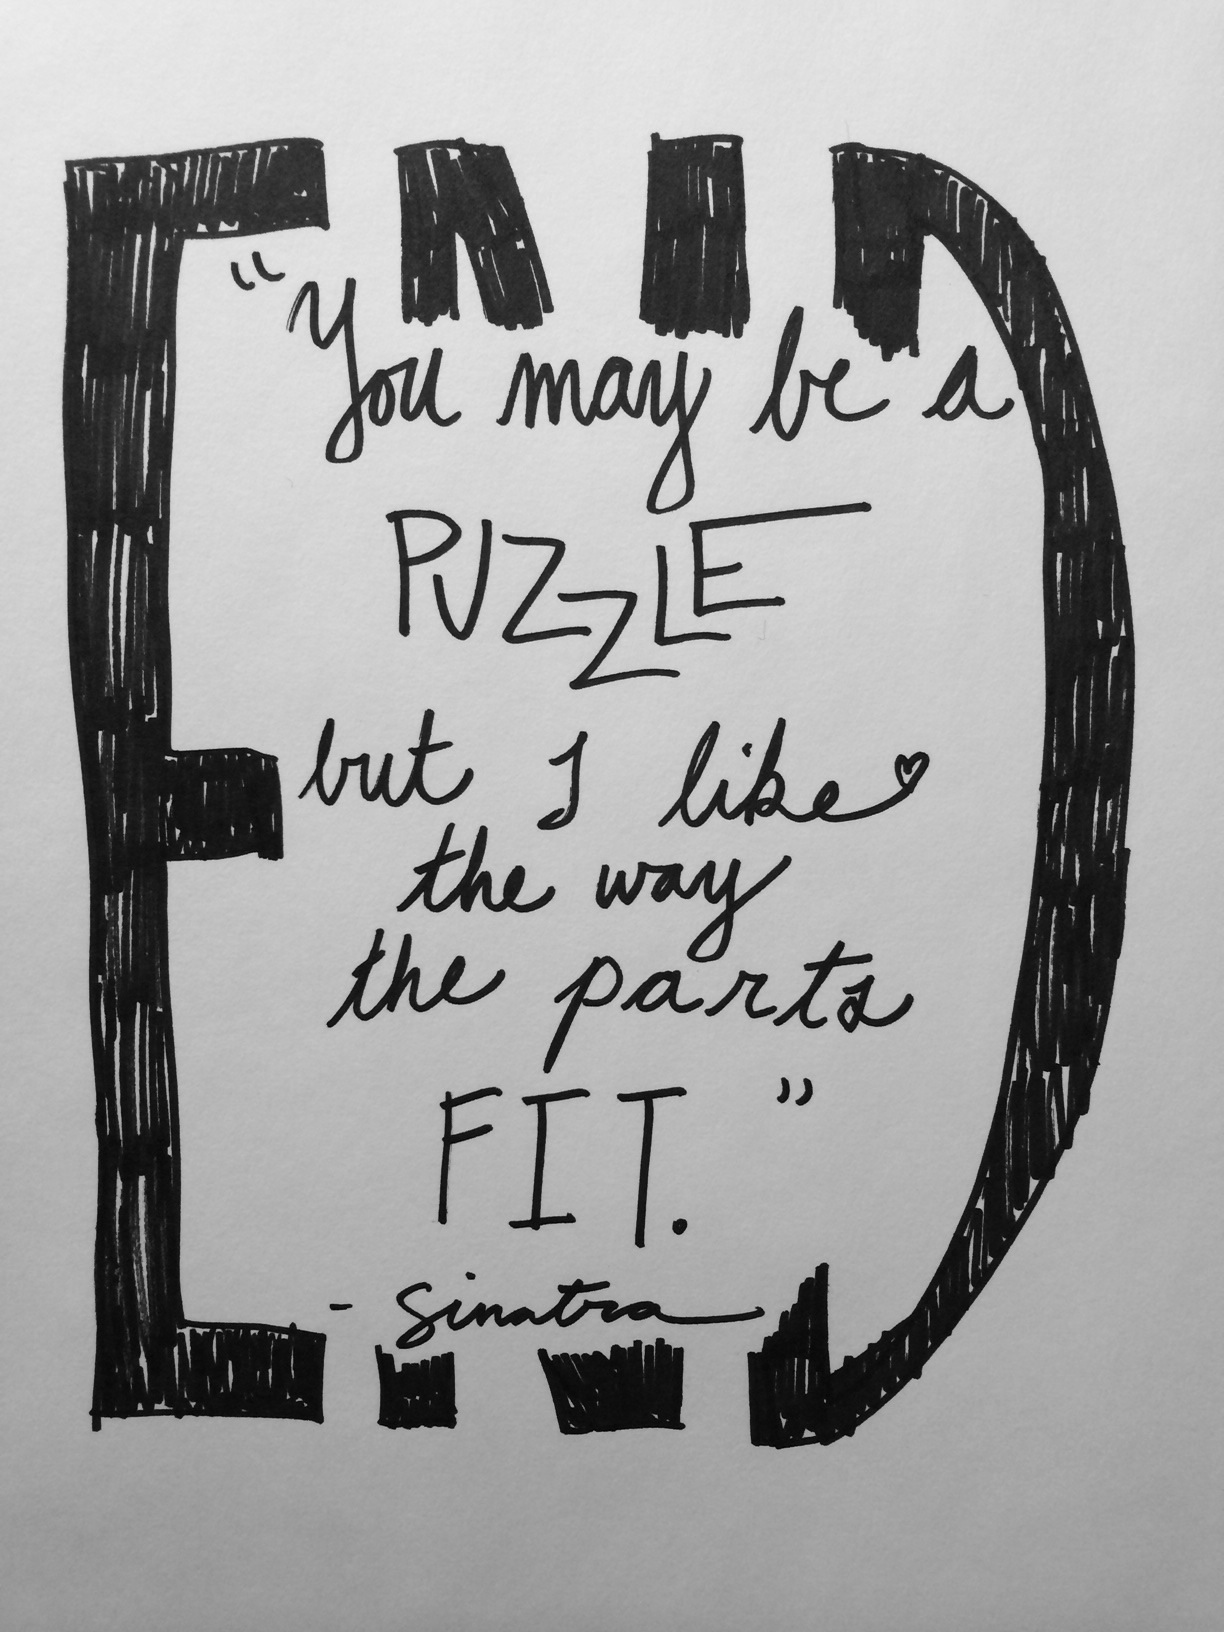 END
"You may be a
PUZZLE
but I like
the way
the parts
FIT."
- Sinatra